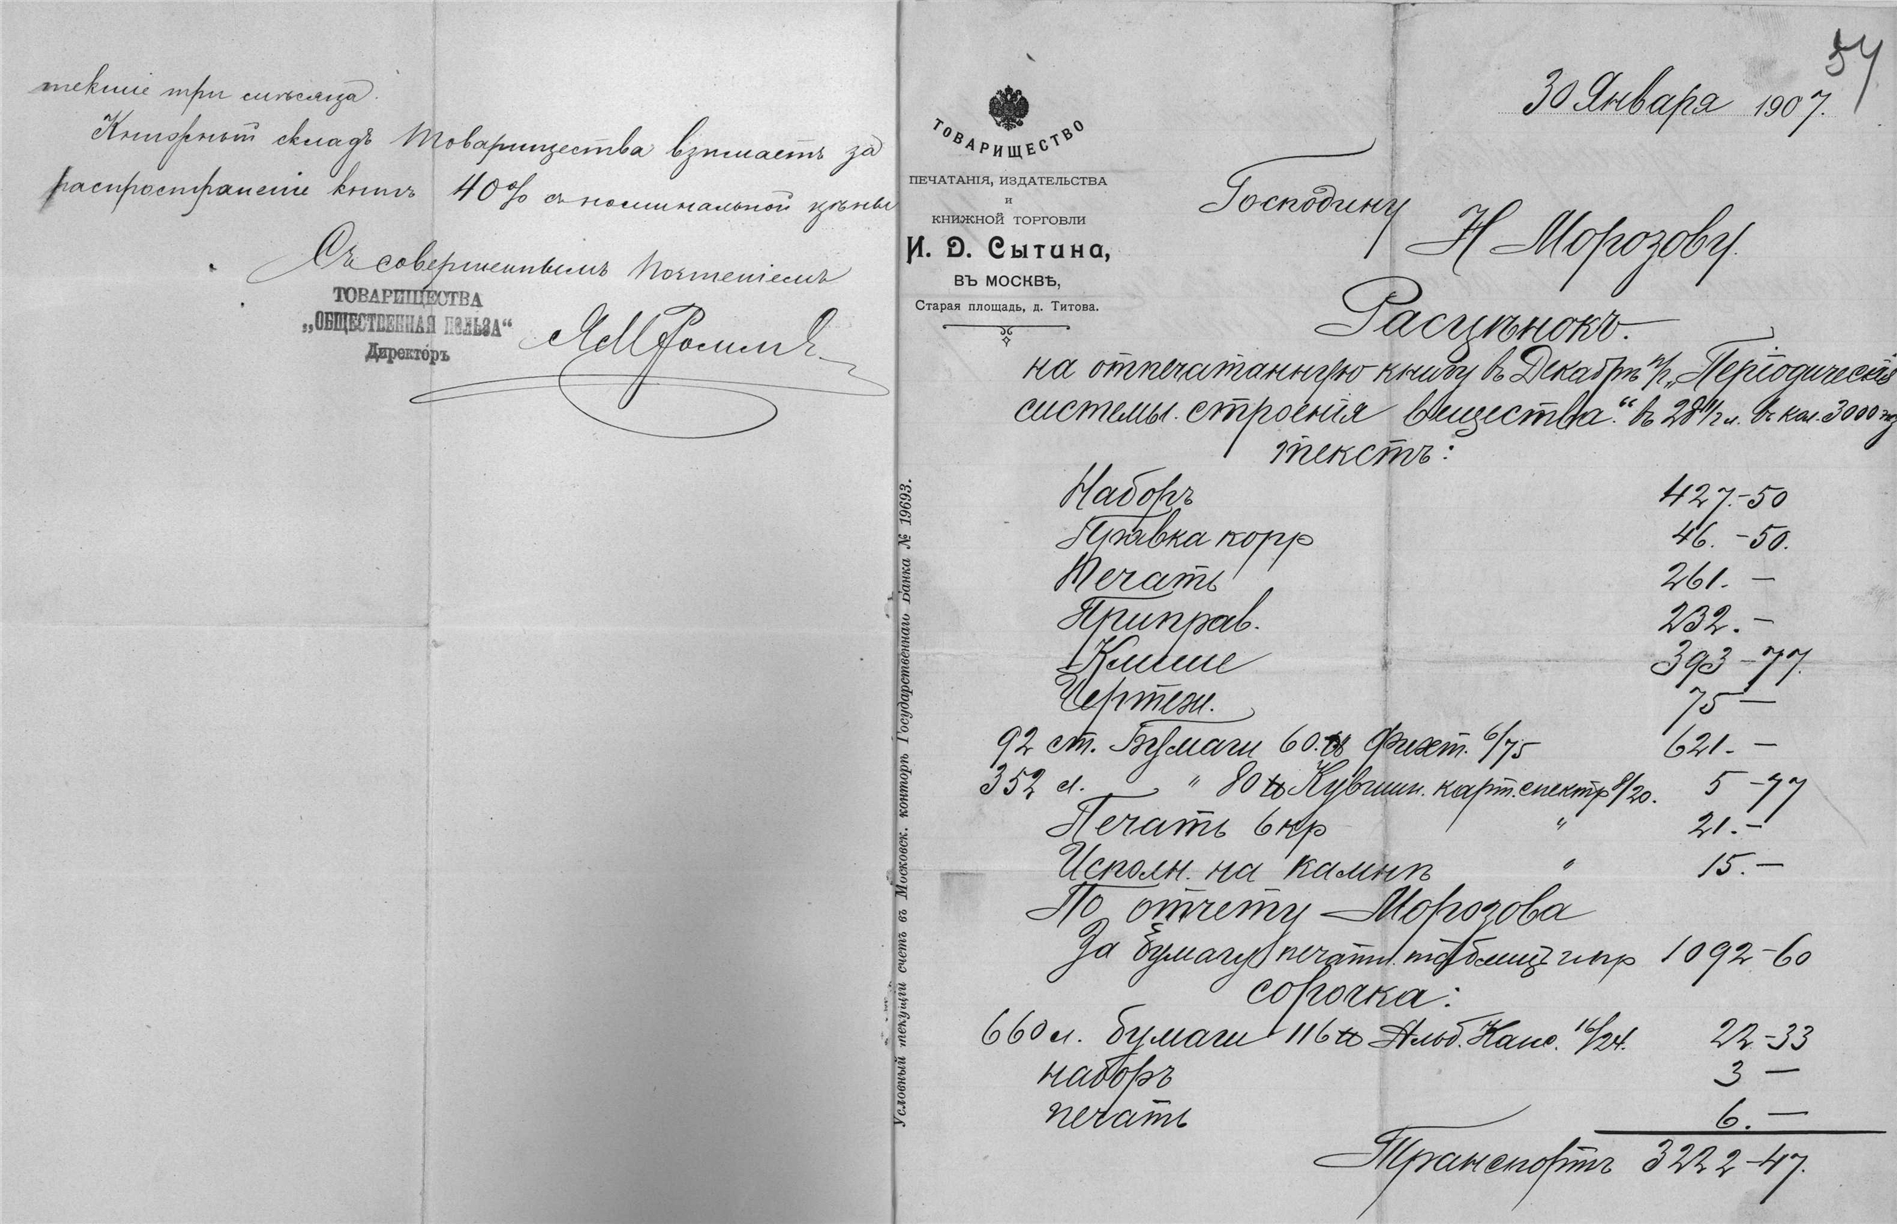 текшіе три мѣсяца.
Книжный складъ Товарищества взимаетъ за
распространеніе книгъ 40% съ номинальной цѣны
Съ совершеннымъ почтеніемъ
ТОВАРИЩЕСТВА
„ОБЩЕСТВЕННАЯ ПОЛЬЗА“
Директоръ
54
30 Января 1907.
ТОВАРИЩЕСТВО
ПЕЧАТАНІЯ, ИЗДАТЕЛЬСТВА
И
КНИЖНОЙ ТОРГОВЛИ
И. Д. Сытина,
ВЪ МОСКВѢ,
Старая площадь, д. Титова.
Условный текущій счетъ въ Московск. конторѣ Государственнаго Банка № 19693.
Господину
Н Морозову.
Расцѣнокъ.
на отпечатанную книгу въ Декабрѣ п/з „Періодическія
системы строенія вещества“ въ 28 1/2 л. въ кол. 3000 экз
текстъ:
Наборъ 427.-50
Правка корр 46.-50.
Печать 261.—
Приправ. 232.—
Клише 393-77.
Чертежи. 75—
92 ст. Бумаги 60 ф. Фихт. 6/75 621.—
352 л. " 80 ф Кувшин. карт. спектр 8/20. 5-77
Печать 6 кр " 21.—
Исполн. на камнѣ " 15.—
По отчету Морозова
За бумагу печатн. таблиц и пр 1092-60
сорочка:
660 л. бумаги 116 ф Альб. Канс. 16/24. 22-33
наборъ 3—
печать 6.—
Транспортъ 3222-47.